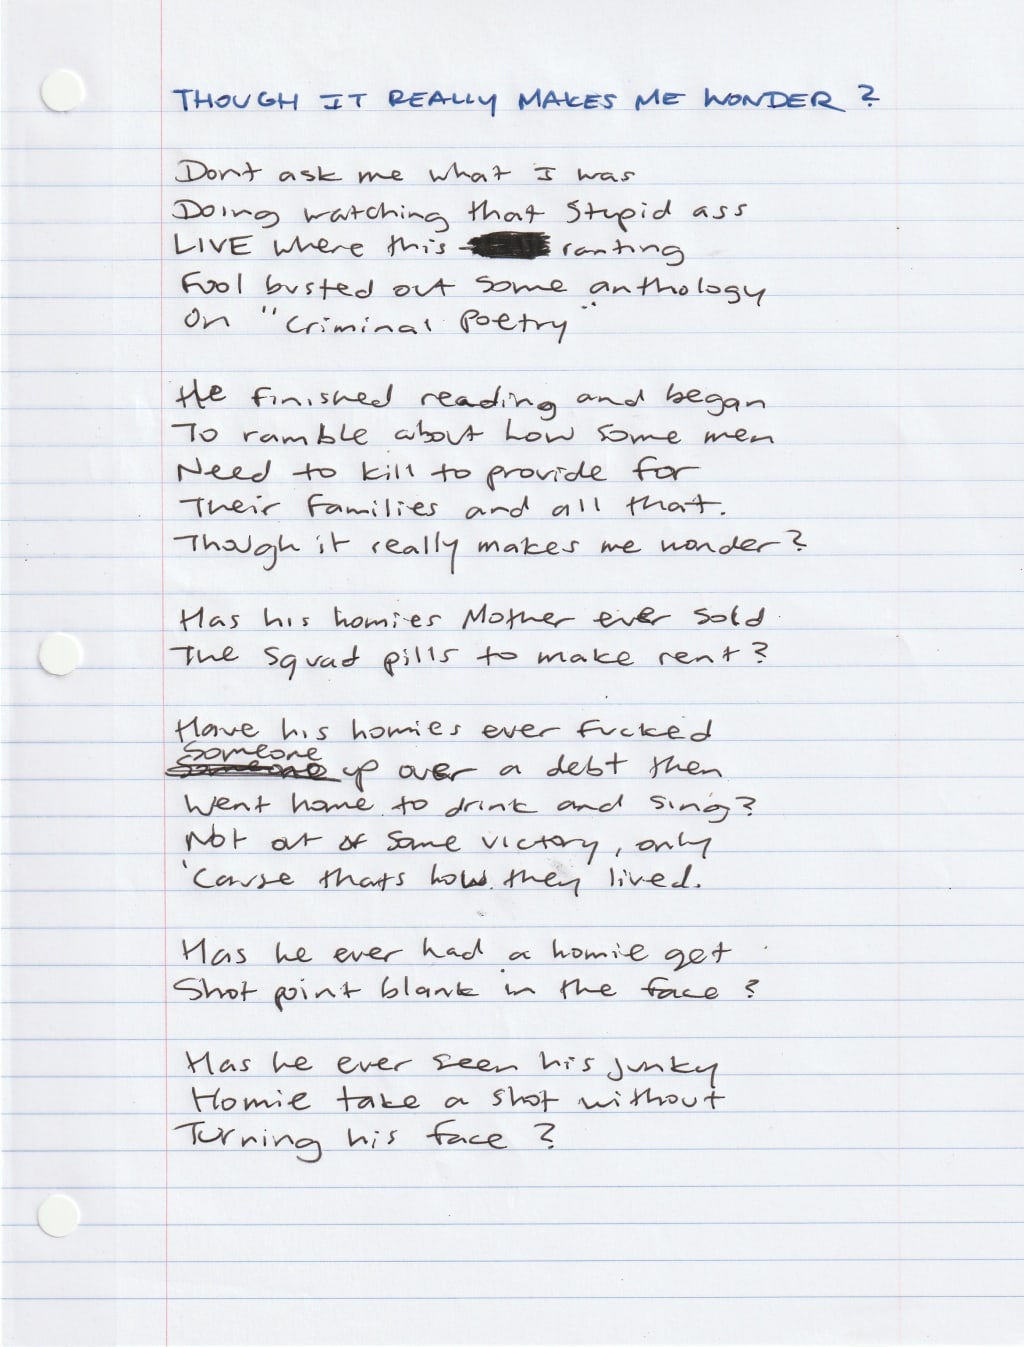 THOUGH IT REALLY MAKES ME WONDER?
Dont ask me what I was
Doing watching that stupid ass
LIVE where this ranting
Fool busted out some anthology
On "Criminal Poetry"
He finished reading and began
To ramble about how some men
Need to kill to provide for
Their families and all that.
Though it really makes me wonder?
Has his homies Mother ever sold
The squad pills to make rent?
Have his homies ever fucked
someone
someone up over a debt then
Went home to drink and sing?
Not out of some victory, only
'Cause thats how they lived.
Has he ever had a homie get
Shot point blank in the face?
Has he ever seen his junky
Homie take a shot without
Turning his face?